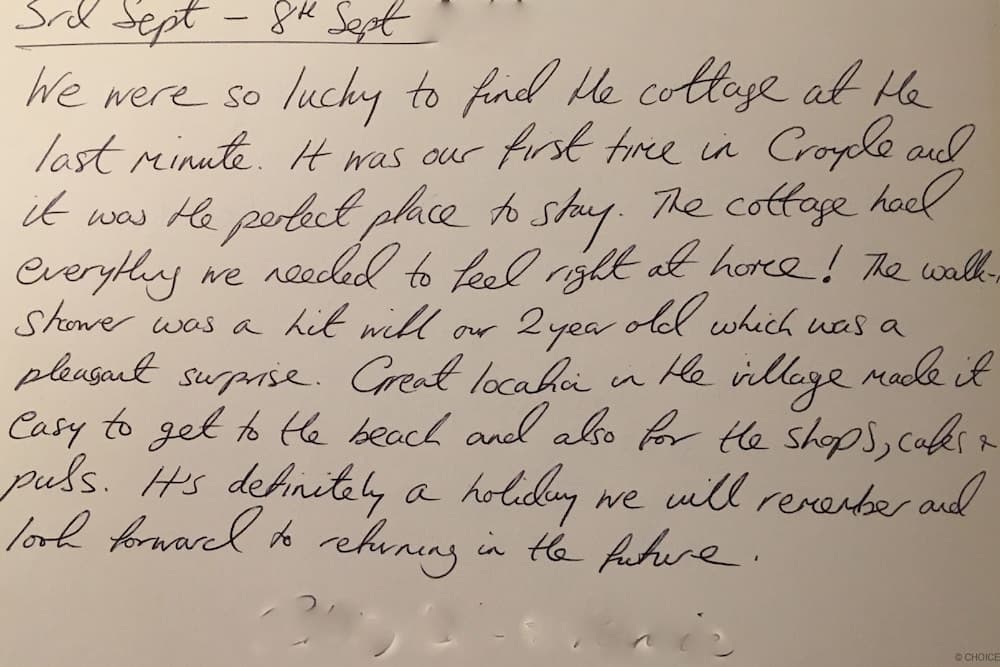 3rd Sept - 8th Sept
We were so lucky to find the cottage at the
last minute. It was our first time in Croyde and
it was the perfect place to stay. The cottage had
everything we needed to feel right at home! The walk-
shower was a hit with our 2 year old which was a
pleasant surprise. Great location in the village made it
easy to get to the beach and also for the shops, cafes &
pubs. It's definitely a holiday we will remember and
look forward to returning in the future.
© CHOICE